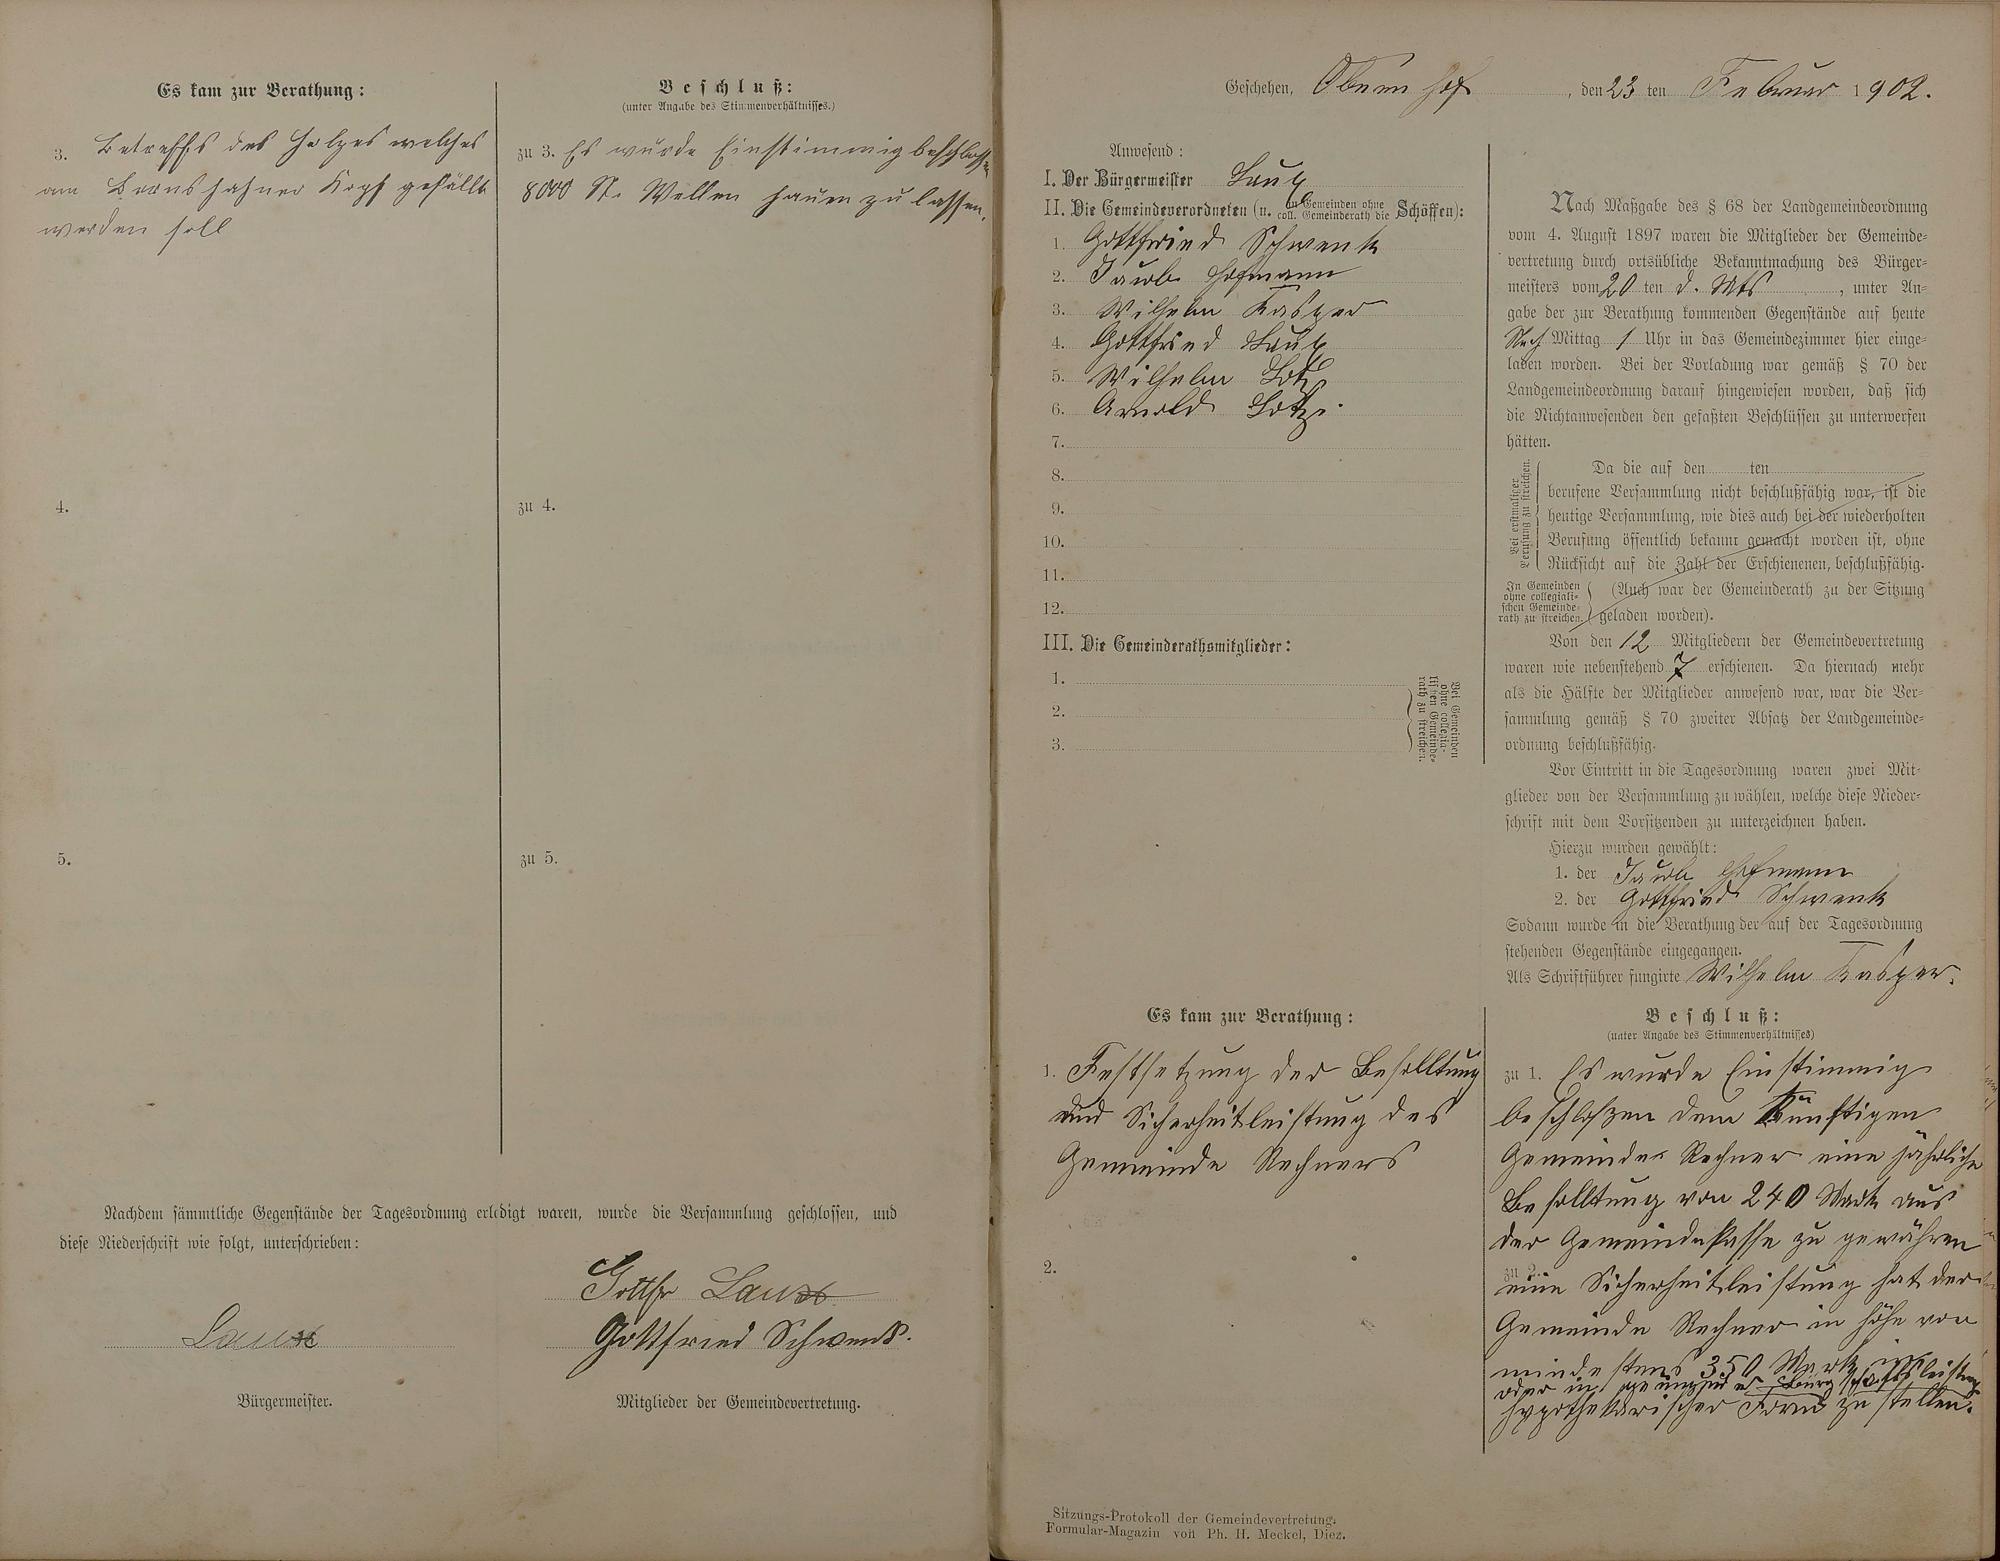 Es kam zur Berathung:
3. Betreffs des Holzes welches
am Bornshahner Kopf gefällt
werden soll
4.
5.
Beschluß:
(unter Angabe des Stimmenverhältnisses.)
zu 3. Es wurde Einstimmig beschlossen
8000 St. Wellen hauen zu lassen.
zu 4.
zu 5.
Nachdem sämmtliche Gegenstände der Tagesordnung erledigt waren, wurde die Versammlung geschlossen, und
diese Niederschrift wie folgt, unterschrieben:
Gottfr Laux
Laux
Gottfried Schwenk.
Bürgermeister.
Mitglieder der Gemeindevertretung.
Geschehen, den 23 ten Februar 1902.
Anwesend:
I. Der Bürgermeister Laux
II. Die Gemeindeverordneten (u. in Gemeinden ohne coll. Gemeinderath die Schöffen):
1. Gottfried Schwenk
2. Jacob Hofmann
3. Wilhelm Kasper
4. Gottfried Laux
5. Wilhelm Lotz
6. Arnold Lotz.
7.
8.
9.
10.
11.
12.
III. Die Gemeinderathsmitglieder:
1.
2.
3.
Bei Gemeinden
ohne collegia-
lischen Gemeinde-
rath zu streichen.
Nach Maßgabe des § 68 der Landgemeindeordnung
vom 4. August 1897 waren die Mitglieder der Gemeinde-
vertretung durch ortsübliche Bekanntmachung des Bürger-
meisters vom 20 ten d. Mts , unter An-
gabe der zur Berathung kommenden Gegenstände auf heute
Nach Mittag 1 Uhr in das Gemeindezimmer hier einge-
laden worden. Bei der Vorladung war gemäß § 70 der
Landgemeindeordnung darauf hingewiesen worden, daß sich
die Nichtanwesenden den gefaßten Beschlüssen zu unterwerfen
hätten.
Bei erstmaliger
Berufung zu streichen.
Da die auf den ten
berufene Versammlung nicht beschlußfähig war, ist die
heutige Versammlung, wie dies auch bei der wiederholten
Berufung öffentlich bekannt gemacht worden ist, ohne
Rücksicht auf die Zahl der Erschienenen, beschlußfähig.
In Gemeinden
ohne collegiali-
schen Gemeinde-
rath zu streichen.
(Auch war der Gemeinderath zu der Sitzung
geladen worden).
Von den 12 Mitgliedern der Gemeindevertretung
waren wie nebenstehend 7 erschienen. Da hiernach mehr
als die Hälfte der Mitglieder anwesend war, war die Ver-
sammlung gemäß § 70 zweiter Absatz der Landgemeinde-
ordnung beschlußfähig.
Vor Eintritt in die Tagesordnung waren zwei Mit-
glieder von der Versammlung zu wählen, welche diese Nieder-
schrift mit dem Vorsitzenden zu unterzeichnen haben.
Hierzu wurden gewählt:
1. der Jacob Hofmann
2. der Gottfried Schwenk
Sodann wurde in die Berathung der auf der Tagesordnung
stehenden Gegenstände eingegangen.
Als Schriftführer fungirte Wilhelm Kasper.
Es kam zur Berathung:
1. Festsetzung der Besolltung
und Sicherheitleistung des
Gemeinde Rechners
2.
Beschluß:
(unter Angabe des Stimmenverhältnisses)
zu 1. Es wurde Einstimmig
beschloßen dem Künftigen
Gemeinde Rechner eine jährliche
Besolltung von 240 Mark aus
der Gemeindekasse zu gewähren
zu 2.
eine Sicherheitleistung hat der
Gemeinde Rechner in höhe von
mindestens 350 Mark in
oder in genügender Bürgschaftsleistung
hypothekarischer Form zu stellen.
Sitzungs-Protokoll der Gemeindevertretung.
Formular-Magazin von Ph. H. Meckel, Diez.